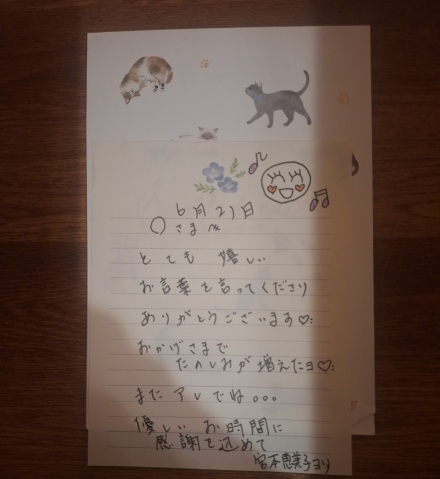 6月21日
○さまへ
とても 嬉しい
お言葉を言ってくださり
ありがとうございます♡:
おかげさまで
たのしみが増えたヨ♡:
また アレでね。。。
優しい お時間に
感謝を込めて
宮本恵美子より